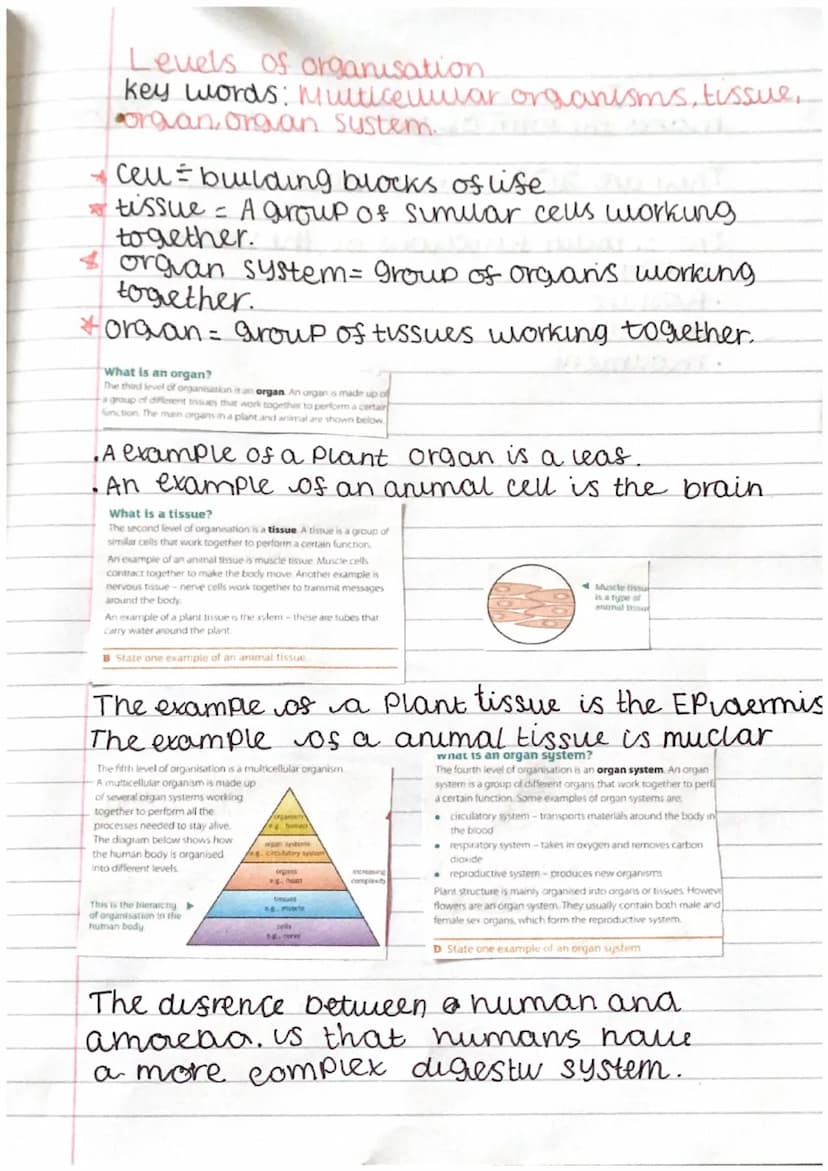 Levels of organisation
key words: Multicellular organisms, tissue,
organ, organ system.
cell = building blocks of life
tissue = A group of simular cells working
together.
organ system = group of organs working
together.
organ = group of tissues working together.
What is an organ?
The third level of organisation is an organ. An organ is made up of
a group of different tissues that work together to perform a certain
function. The main organs in a plant and animal are shown below.
.A example of a plant organ is a leaf.
.An example of an animal cell is the brain
What is a tissue?
The second level of organisation is a tissue. A tissue is a group of
similar cells that work together to perform a certain function.
An example of an animal tissue is muscle tissue. Muscle cells
contract together to make the body move. Another example is
nervous tissue – nerve cells work together to transmit messages
around the body.
An example of a plant tissue is the xylem – these are tubes that
carry water around the plant.
B State one example of an animal tissue.
◄ Muscle tissu
is a type of
animal tissue
The example of a plant tissue is the EPidermis
The example of a animal tissue is muclar
The fifth level of organisation is a multicellular organism.
A multicellular organism is made up
of several organ systems working
together to perform all the
processes needed to stay alive.
The diagram below shows how
the human body is organised
into different levels.
This is the hierarchy ►
of organisation in the
human body
organism
e.g., human
organ systems
e.g., circulatory system
organs
e.g., heart
tissues
e.g., muscle
cells
e.g., nerve
increasing
complexity
What is an organ system?
The fourth level of organisation is an organ system. An organ
system is a group of different organs that work together to perfo
a certain function. Some examples of organ systems are:
• circulatory system – transports materials around the body in
the blood
• respiratory system – takes in oxygen and removes carbon
dioxide
• reproductive system – produces new organisms
Plant structure is mainly organised into organs or tissues. Howeve
flowers are an organ system. They usually contain both male and
female sex organs, which form the reproductive system.
D State one example of an organ system.
The disrence between a human and
amoeba. is that humans have
a more complex digestiv system.